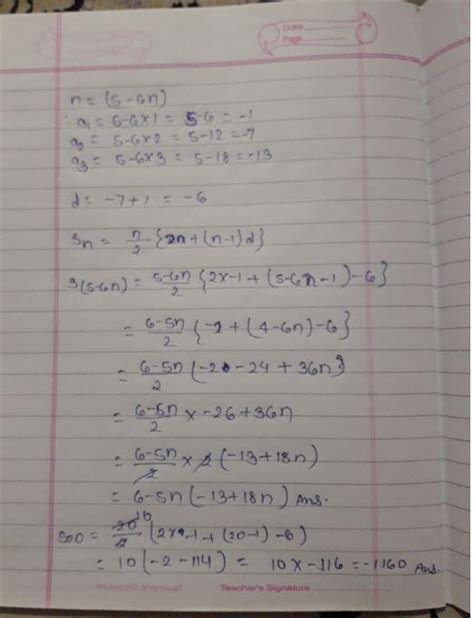 Date
Page
n = (5 - 6n)
∴ a₁ = 5-6×1 = 5-6 = -1
a₂ = 5-6×2 = 5-12 = -7
a₃ = 5-6×3 = 5-18 = -13
d = -7+1 = -6
Sn = n/2 {2n + (n-1)d}
S(5-6n) = 5-6n/2 {2×-1 + (5-6n-1)-6}
= 6-5n/2 {-2 + (4-6n)-6}
= 6-5n/2 (-2 -24 + 36n)
= 6-5n/2 × -26+36n
= 6-5n/2 × 2 (-13+18n)
= 6-5n (-13+18n) Ans.
= 10 (-2 - 114) = 10 × -116 = -1160 Ans.
Teacher's Signature